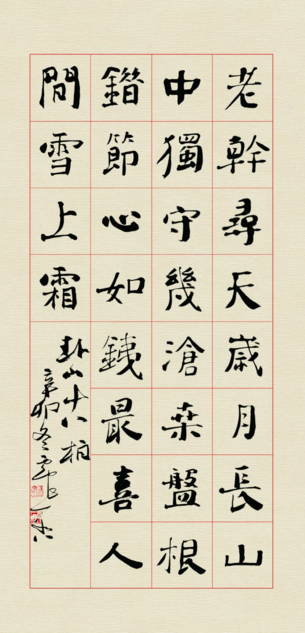 老幹尋天歲月長山
中獨守幾滄桑盤根
錯節心如鐵最喜人
間雪上霜
卦山十八柏
辛卯冬